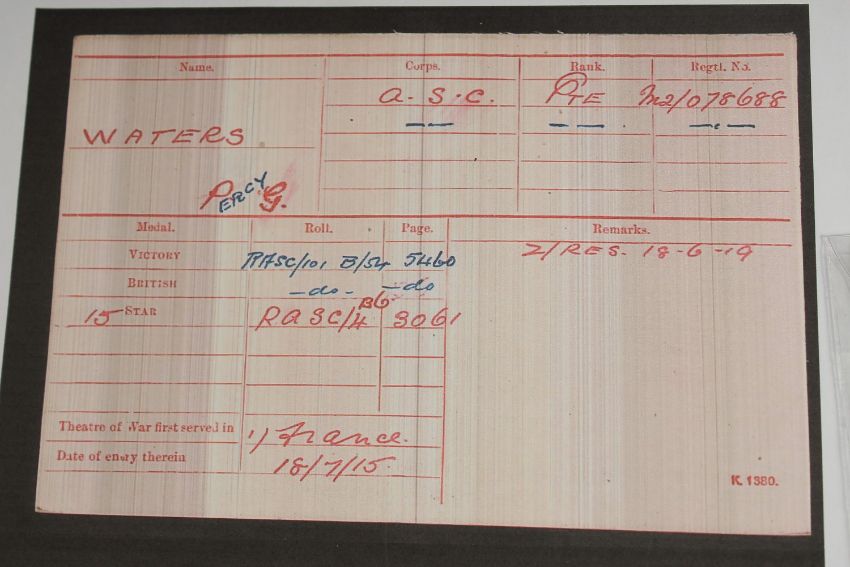 Name. Corps. Rank. Regtl. No.
A.S.C. PTE M2/078688
WATERS — — — — — —
PERCY G.
Medal. Roll. Page. Remarks.
VICTORY RASC/101 B/54 5460 Z/RES. 18-6-19
BRITISH -do- -do
15 STAR RASC/4 B6 3061
Theatre of War first served in 1) France.
Date of entry therein 18/7/15.
K. 1380.